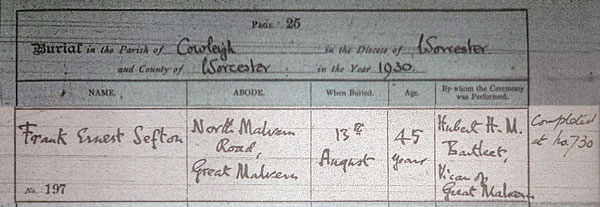 PAGE 25
Burial in the Parish of Cowleigh in the Diocese of Worcester
and County of Worcester in the Year 1930.
NAME. ABODE. When Buried. Age. By whom the Ceremony was Performed.
Frank Ernest Sefton
No. 197
North Malvern
Road,
Great Malvern
13th
August
45
years
Hubert H. M.
Bartleet,
Vicar of
Great Malvern
Completed
at No. 730